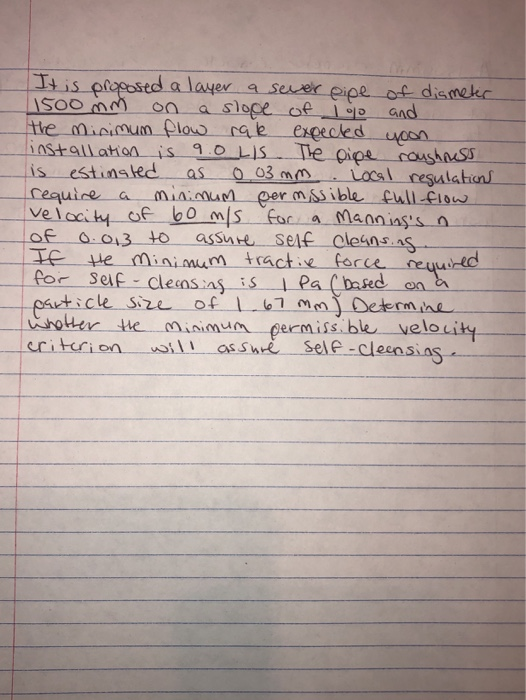 It is proposed a layer a sewer pipe of diameter
1500 mm on a slope of 1% and
the minimum flow rate expected upon
installation is 9.0 L/S. The pipe roughness
is estimated as 0.03 mm. Local regulations
require a minimum permissible full-flow
velocity of 60 m/s for a Manning's n
of 0.013 to assure self cleansing.
If the minimum tractive force required
for self-cleansing is 1 Pa (based on a
particle size of 1.67 mm) Determine
whother the minimum permissible velocity
criterion will assure self-cleensing.